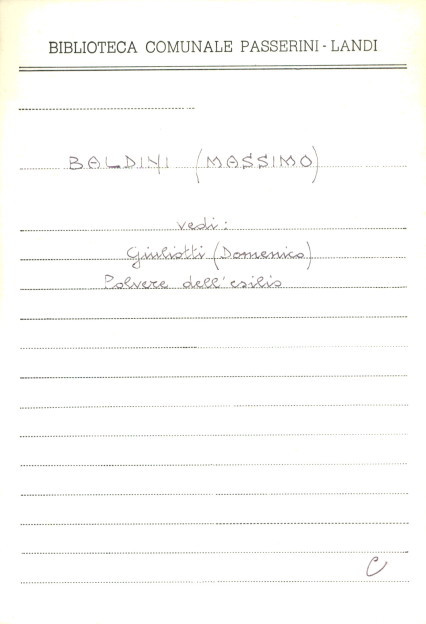 BIBLIOTECA COMUNALE PASSERINI - LANDI
BALDINI (MASSIMO)
vedi:
Giuliotti (Domenico)
Polvere dell'esilio
C